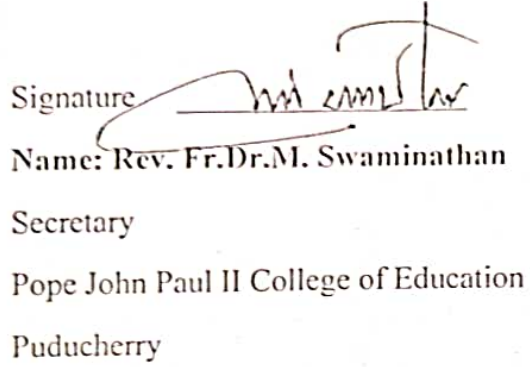 Signature
Name: Rev. Fr.Dr.M. Swaminathan
Secretary
Pope John Paul II College of Education
Puducherry